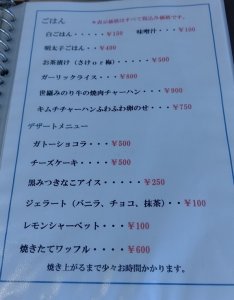 ごはん　※表示価格はすべて税込み価格です。
白ごはん・・・・・￥150　味噌汁・・・￥100
明太子ごはん・・￥400
お茶漬け（さけｏｒ梅）・・・・・￥500
ガーリックライス・・・・・￥600
世羅みのり牛の焼肉チャーハン・・・￥900
キムチチャーハンふわふわ卵のせ・・・￥750
デザートメニュー
ガトーショコラ・・・・￥500
チーズケーキ・・・・・￥500
黒みつきなこアイス・・・・・￥250
ジェラート（バニラ、チョコ、抹茶）・・￥100
レモンシャーベット・・・・￥100
焼きたてワッフル・・・・￥600
焼き上がるまで少々お時間かかります。